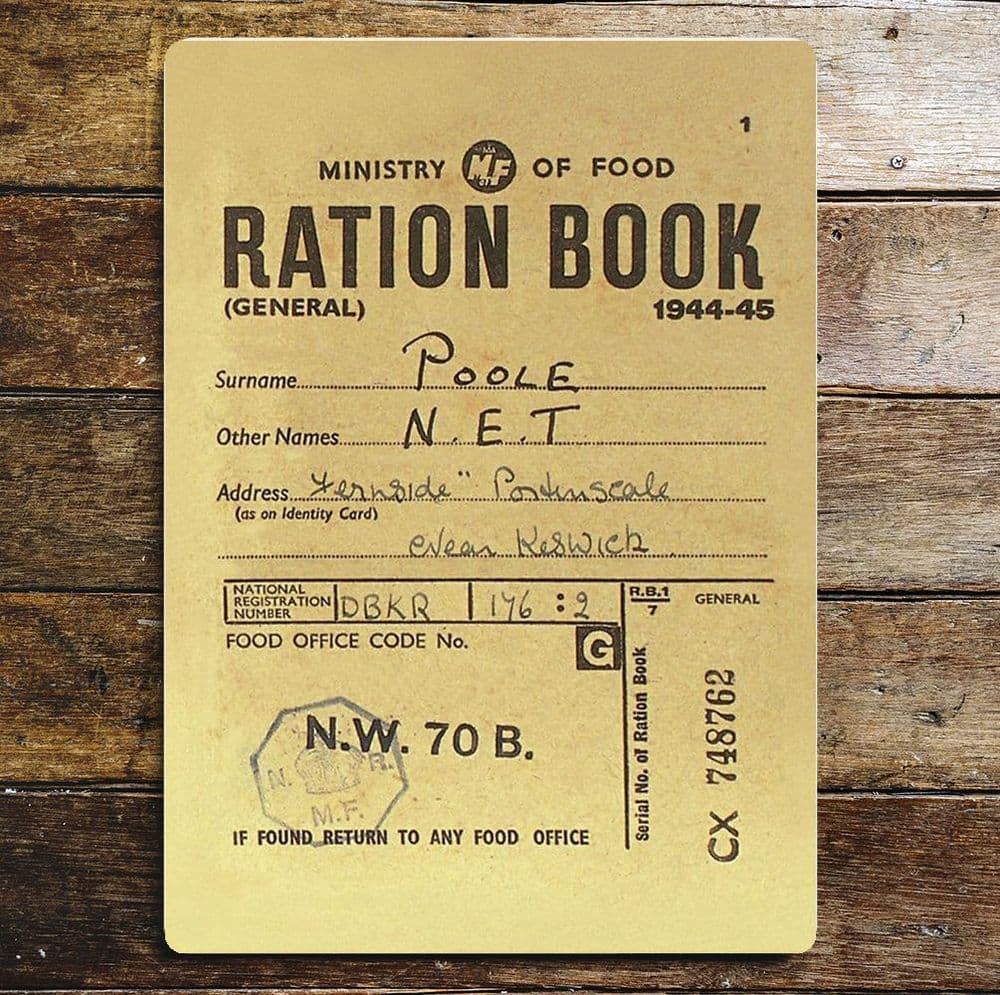 1
MINISTRY MF OF FOOD
RATION BOOK
(GENERAL) 1944-45
Surname POOLE
Other Names N.E.T
Address "Fernside" Portinscale
(as on Identity Card)
Near Keswick
NATIONAL
REGISTRATION
NUMBER DBKR 146 : 2
R.B.1
7
GENERAL
FOOD OFFICE CODE No.
G
N.W. 70 B.
N. R.
M.F.
IF FOUND RETURN TO ANY FOOD OFFICE
Serial No. of Ration Book
CX 748762